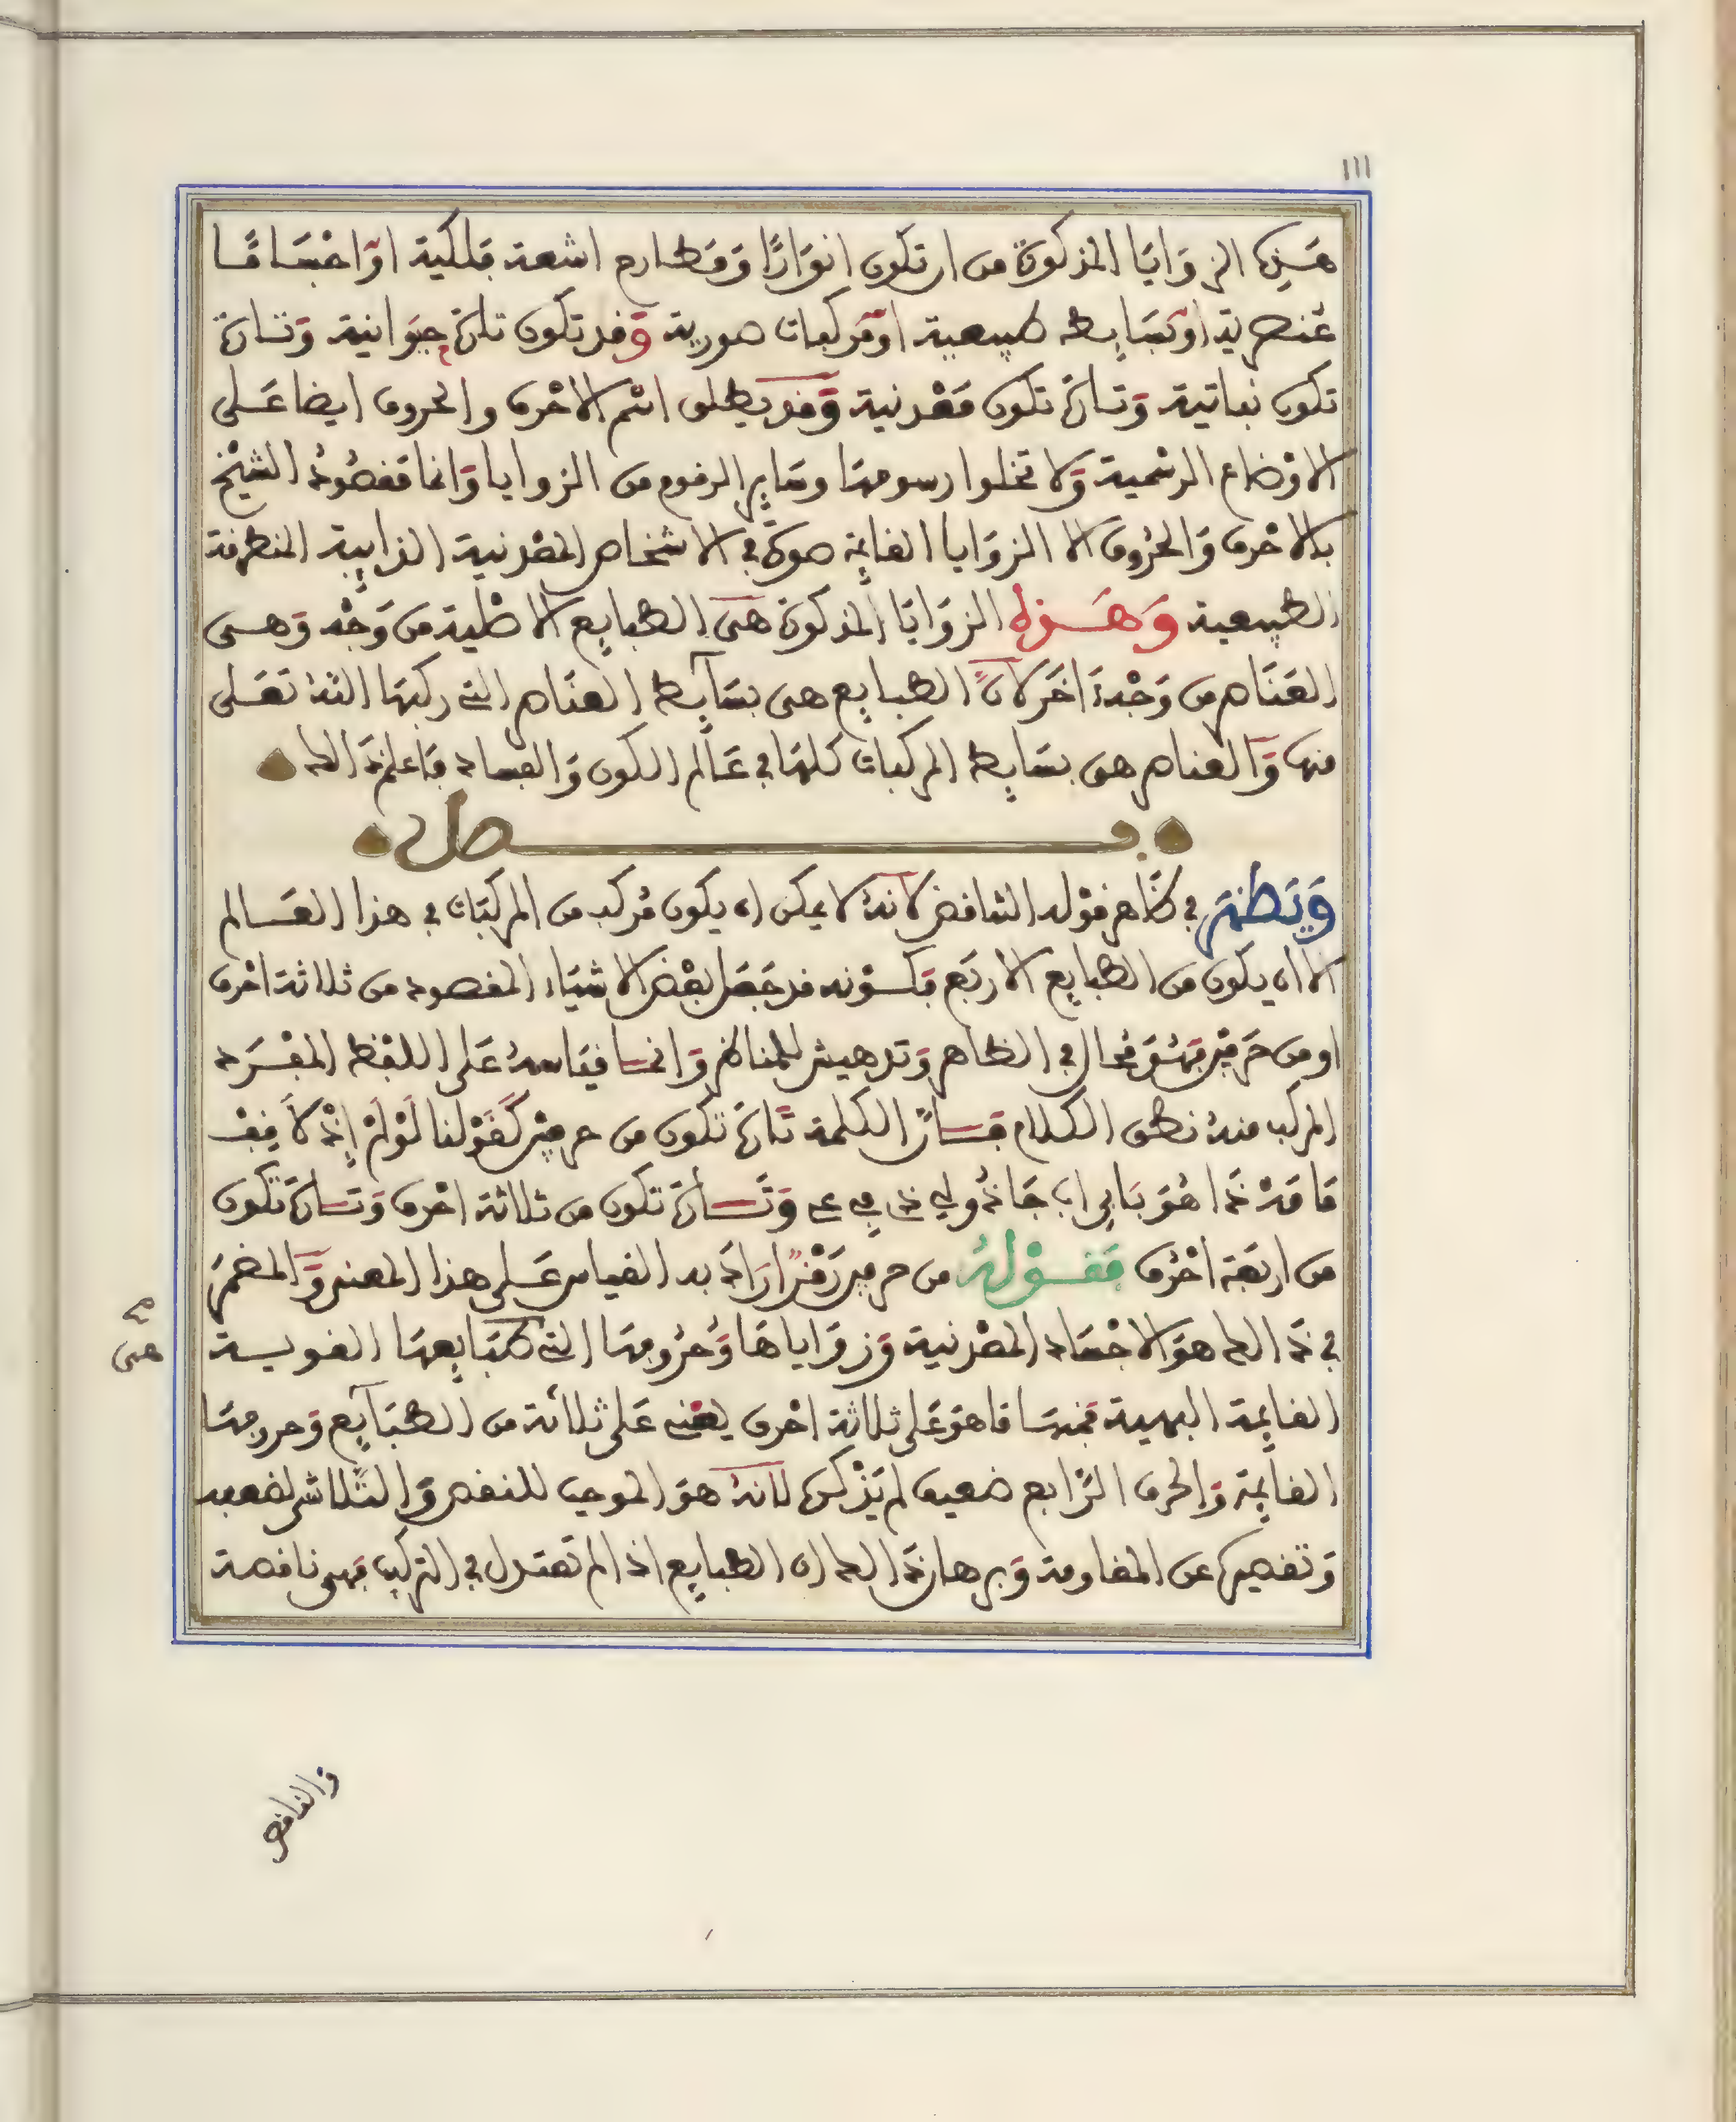 111
هذه الزوايا المذكورة من ان تكون انوارا ومطارح اشعة فلكية او اجساما
عنصرية او بسايط طبيعية او مركبات صورية وقد تكون تارة حيوانية وتارة
تكون نباتية وتارة تكون معدنية وقد يطلق اسم الاحرف والحروف ايضا على
الاوضاع الرسمية ولا تخلوا رسومها وساير الرقوم من الزوايا وانما مقصود الشيخ
بالاحرف والحروف الا الزوايا القايمة صورة في الاشخاص المعدنية الذايبة المنطرقة
الطبيعية وهذه الزوايا المذكورة هي الطبايع الاصلية من وجه وهي
العناصر من وجه اخر لان الطبايع هي بسايط العناصر التي ركبها الله تعلى
منها والعناصر هي بسايط المركبات كلها في عالم الكون والفساد فاعلم ذالك
فصل
ويظهر في ظاهر قوله التناقض لانه لا يمكن ان يكون مركب من المركبات في هذا العالم
الا ان يكون من الطبايع الاربع فكونه قد جعل بعض الاشياء المقصود من ثلاثة احرف
او من حرفين فهو محال في الظاهر وتدهيش للمناظر وانما قياسه على اللفظ المفرد
المركب منه نطق الكلام فان الكلمة تارة تكون من حرفين كقولنا لو لم اذ لا قف
ما مه ذا هو با اب جا ذو لي خ في ع وتارة تكون من ثلاثة احرف وتارة تكون
من اربعة احرف فقوله من حرفين رمز اراد به القياس على هذا المعنى والمضمر
في ذالك هو الاجساد المعدنية وزواياها وحروفها التي طبايعها القوية
هي
القايمة البهية فمنها ما هو على ثلاثة احرف يعني على ثلاثة من الطبايع وحروفها
القايمة والحرف الرابع ضعيف لم يذكره لانه هو الموجب للنقص والتلاشي لضعفه
وتقصيره عن المقاومة وبرهان ذالك ان الطبايع اذا لم تعتدل في التركيب فهي ناقصة
والناقص